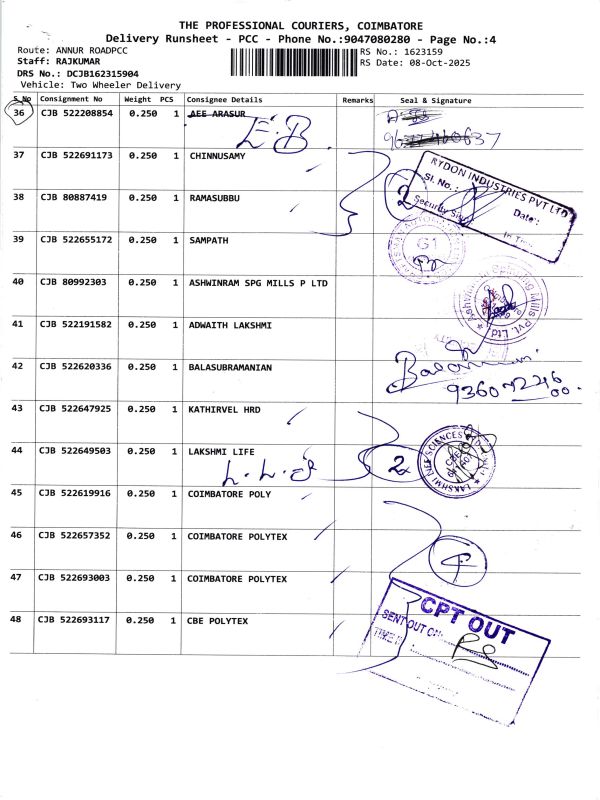 THE PROFESSIONAL COURIERS, COIMBATORE
Delivery Runsheet - PCC - Phone No.:9047080280 - Page No.:4
Route: ANNUR ROADPCC
RS No.: 1623159
Staff: RAJKUMAR
RS Date: 08-Oct-2025
DRS No.: DCJB162315904
Vehicle: Two Wheeler Delivery
S.No Consignment No Weight PCS Consignee Details Remarks Seal & Signature
36 CJB 522208854 0.250 1 AEE ARASUR
E.B
37 CJB 522691173 0.250 1 CHINNUSAMY
RYDON INDUSTRIES PVT LTD
Sl. No. :
Date:
Security Sign
In Time
38 CJB 80887419 0.250 1 RAMASUBBU
2
39 CJB 522655172 0.250 1 SAMPATH
G1
40 CJB 80992303 0.250 1 ASHWINRAM SPG MILLS P LTD
Ashwinram Spinning Mills Pvt. Ltd
41 CJB 522191582 0.250 1 ADWAITH LAKSHMI
42 CJB 522620336 0.250 1 BALASUBRAMANIAN
43 CJB 522647925 0.250 1 KATHIRVEL HRD
44 CJB 522649503 0.250 1 LAKSHMI LIFE
L.L.S
2
LAKSHMI LIFE SCIENCES
45 CJB 522619916 0.250 1 COIMBATORE POLY
46 CJB 522657352 0.250 1 COIMBATORE POLYTEX
4
47 CJB 522693003 0.250 1 COIMBATORE POLYTEX
48 CJB 522693117 0.250 1 CBE POLYTEX
CPT OUT
SENT OUT ON
TIME